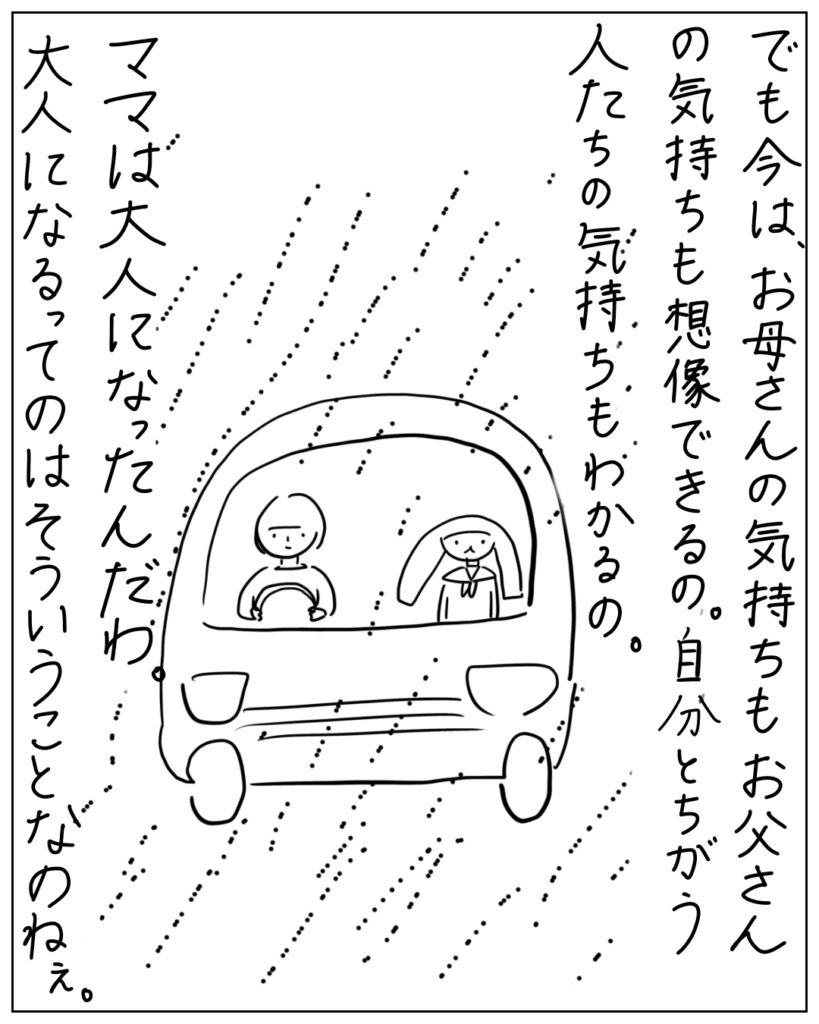 でも今は、お母さんの気持ちもお父さん
の気持ちも想像できるの。自分とちがう
人たちの気持ちもわかるの。
ママは大人になったんだわ。
大人になるってのはそういうことなのねぇ。